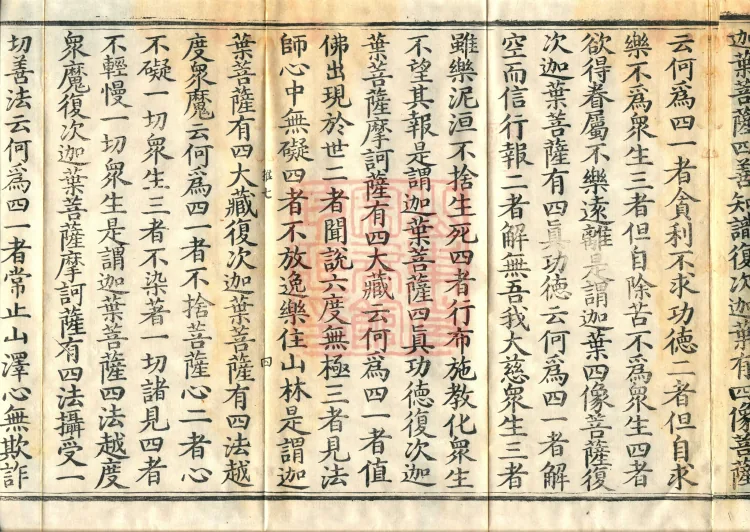 迦葉菩薩四善知識復次迦葉有四像菩薩
云何爲四一者貪利不求功德二者但自求
樂不爲衆生三者但自除苦不爲衆生四者
欲得眷屬不樂遠離是謂迦葉四像菩薩復
次迦葉菩薩有四眞功德云何爲四一者解
空而信行報二者解無吾我大慈衆生三者
雖樂泥洹不捨生死四者行布施教化衆生
不望其報是謂迦葉菩薩四眞功德復次迦
葉菩薩摩訶薩有四大藏云何爲四一者值
佛出現於世二者聞說六度無極三者見法
師心中無礙四者不放逸樂住山林是謂迦
葉菩薩有四大藏復次迦葉菩薩有四法越
度衆魔云何爲四一者不捨菩薩心二者心
不礙一切衆生三者不染著一切諸見四者
不輕慢一切衆生是謂迦葉菩薩四法越度
衆魔復次迦葉菩薩摩訶薩有四法攝受一
切善法云何爲四一者常止山澤心無欺詐